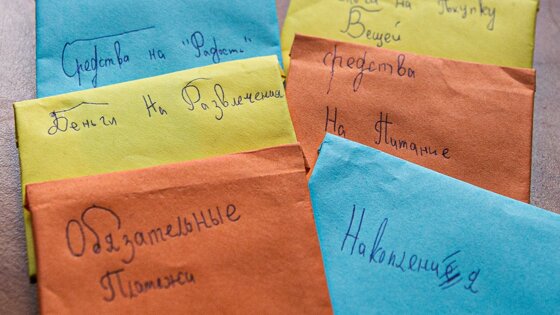 Средства на "Радость"
на Покупку
Вещей
Деньги На Развлечения
средства
На Питание
Обязательные
Платежи
Накопления